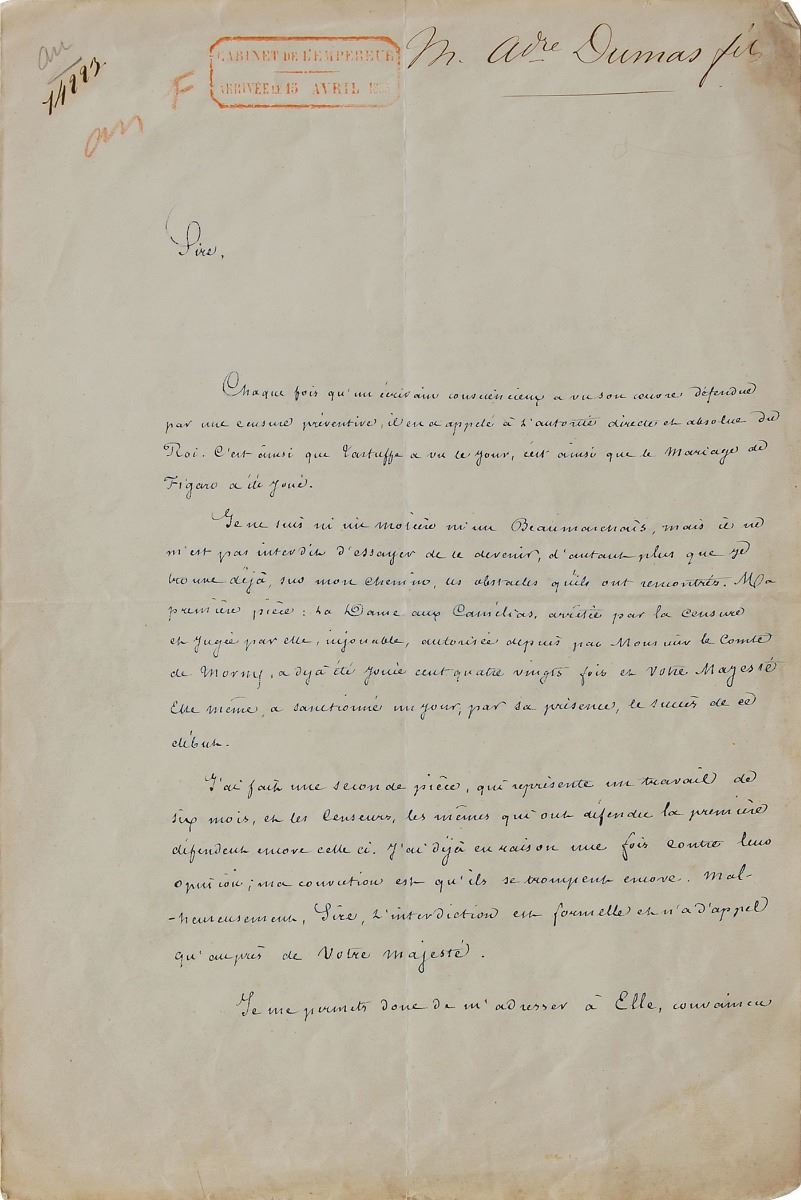 an
14223.
an F
CABINET DE L'EMPEREUR
ARRIVÉE LE 15 AVRIL
M. Adre Dumas fils
Sire,
Chaque fois qu'un écrivain consciencieux a vu son œuvre défendue
par une censure préventive, il en a appelé à l'autorité directe et absolue du
Roi. C'est ainsi que Tartuffe a vu le jour, c'est ainsi que le Mariage de
Figaro a été joué.
Je ne suis ni un molière ni un Beaumarchais, mais il ne
m'est pas interdit d'essayer de le devenir, d'autant plus que je
trouve déjà, sur mon chemin, les obstacles qu'ils ont rencontrés. Ma
première pièce : La Dame aux Camélias, arrêtée par la censure
et jugée par elle, injouable, autorisée depuis par Monsieur le Comte
de Morny, a déjà été jouée cent quatre vingts fois et Votre Majesté
Elle même, a sanctionné un jour, par sa présence, le succès de ce
début.
J'ai fait une seconde pièce, qui représente un travail de
six mois, et les Censeurs, les mêmes qui ont défendu la première
défendent encore celle ci. J'ai déjà eu raison une fois contre leur
opinion ; ma conviction est qu'ils se trompent encore. Mal-
-heureusement, Sire, l'interdiction est formelle et n'a d'appel
qu'auprès de Votre majesté.
Je me permets donc de m'adresser à Elle, convaincu